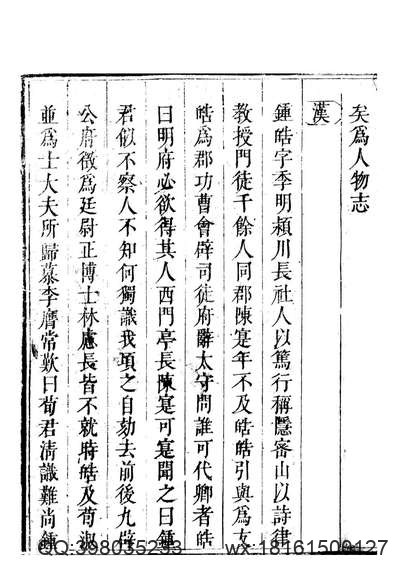 矣爲人物志
漢
鍾皓字季明潁川長社人以篤行稱隱密山以詩律
教授門徒千餘人同郡陳寔年不及皓皓引與爲友
皓爲郡功曹會辟司徒府辭太守問誰可代卿者皓
曰明府必欲得其人西門亭長陳寔可寔聞之曰鍾
君似不察人不知何獨識我頃之自劾去前後九辟
公府徵爲廷尉正博士林慮長皆不就時皓及荀淑
並爲士大夫所歸慕李膺常歎曰荀君清識難尚鍾
QQ:398035233 wx:18161500127